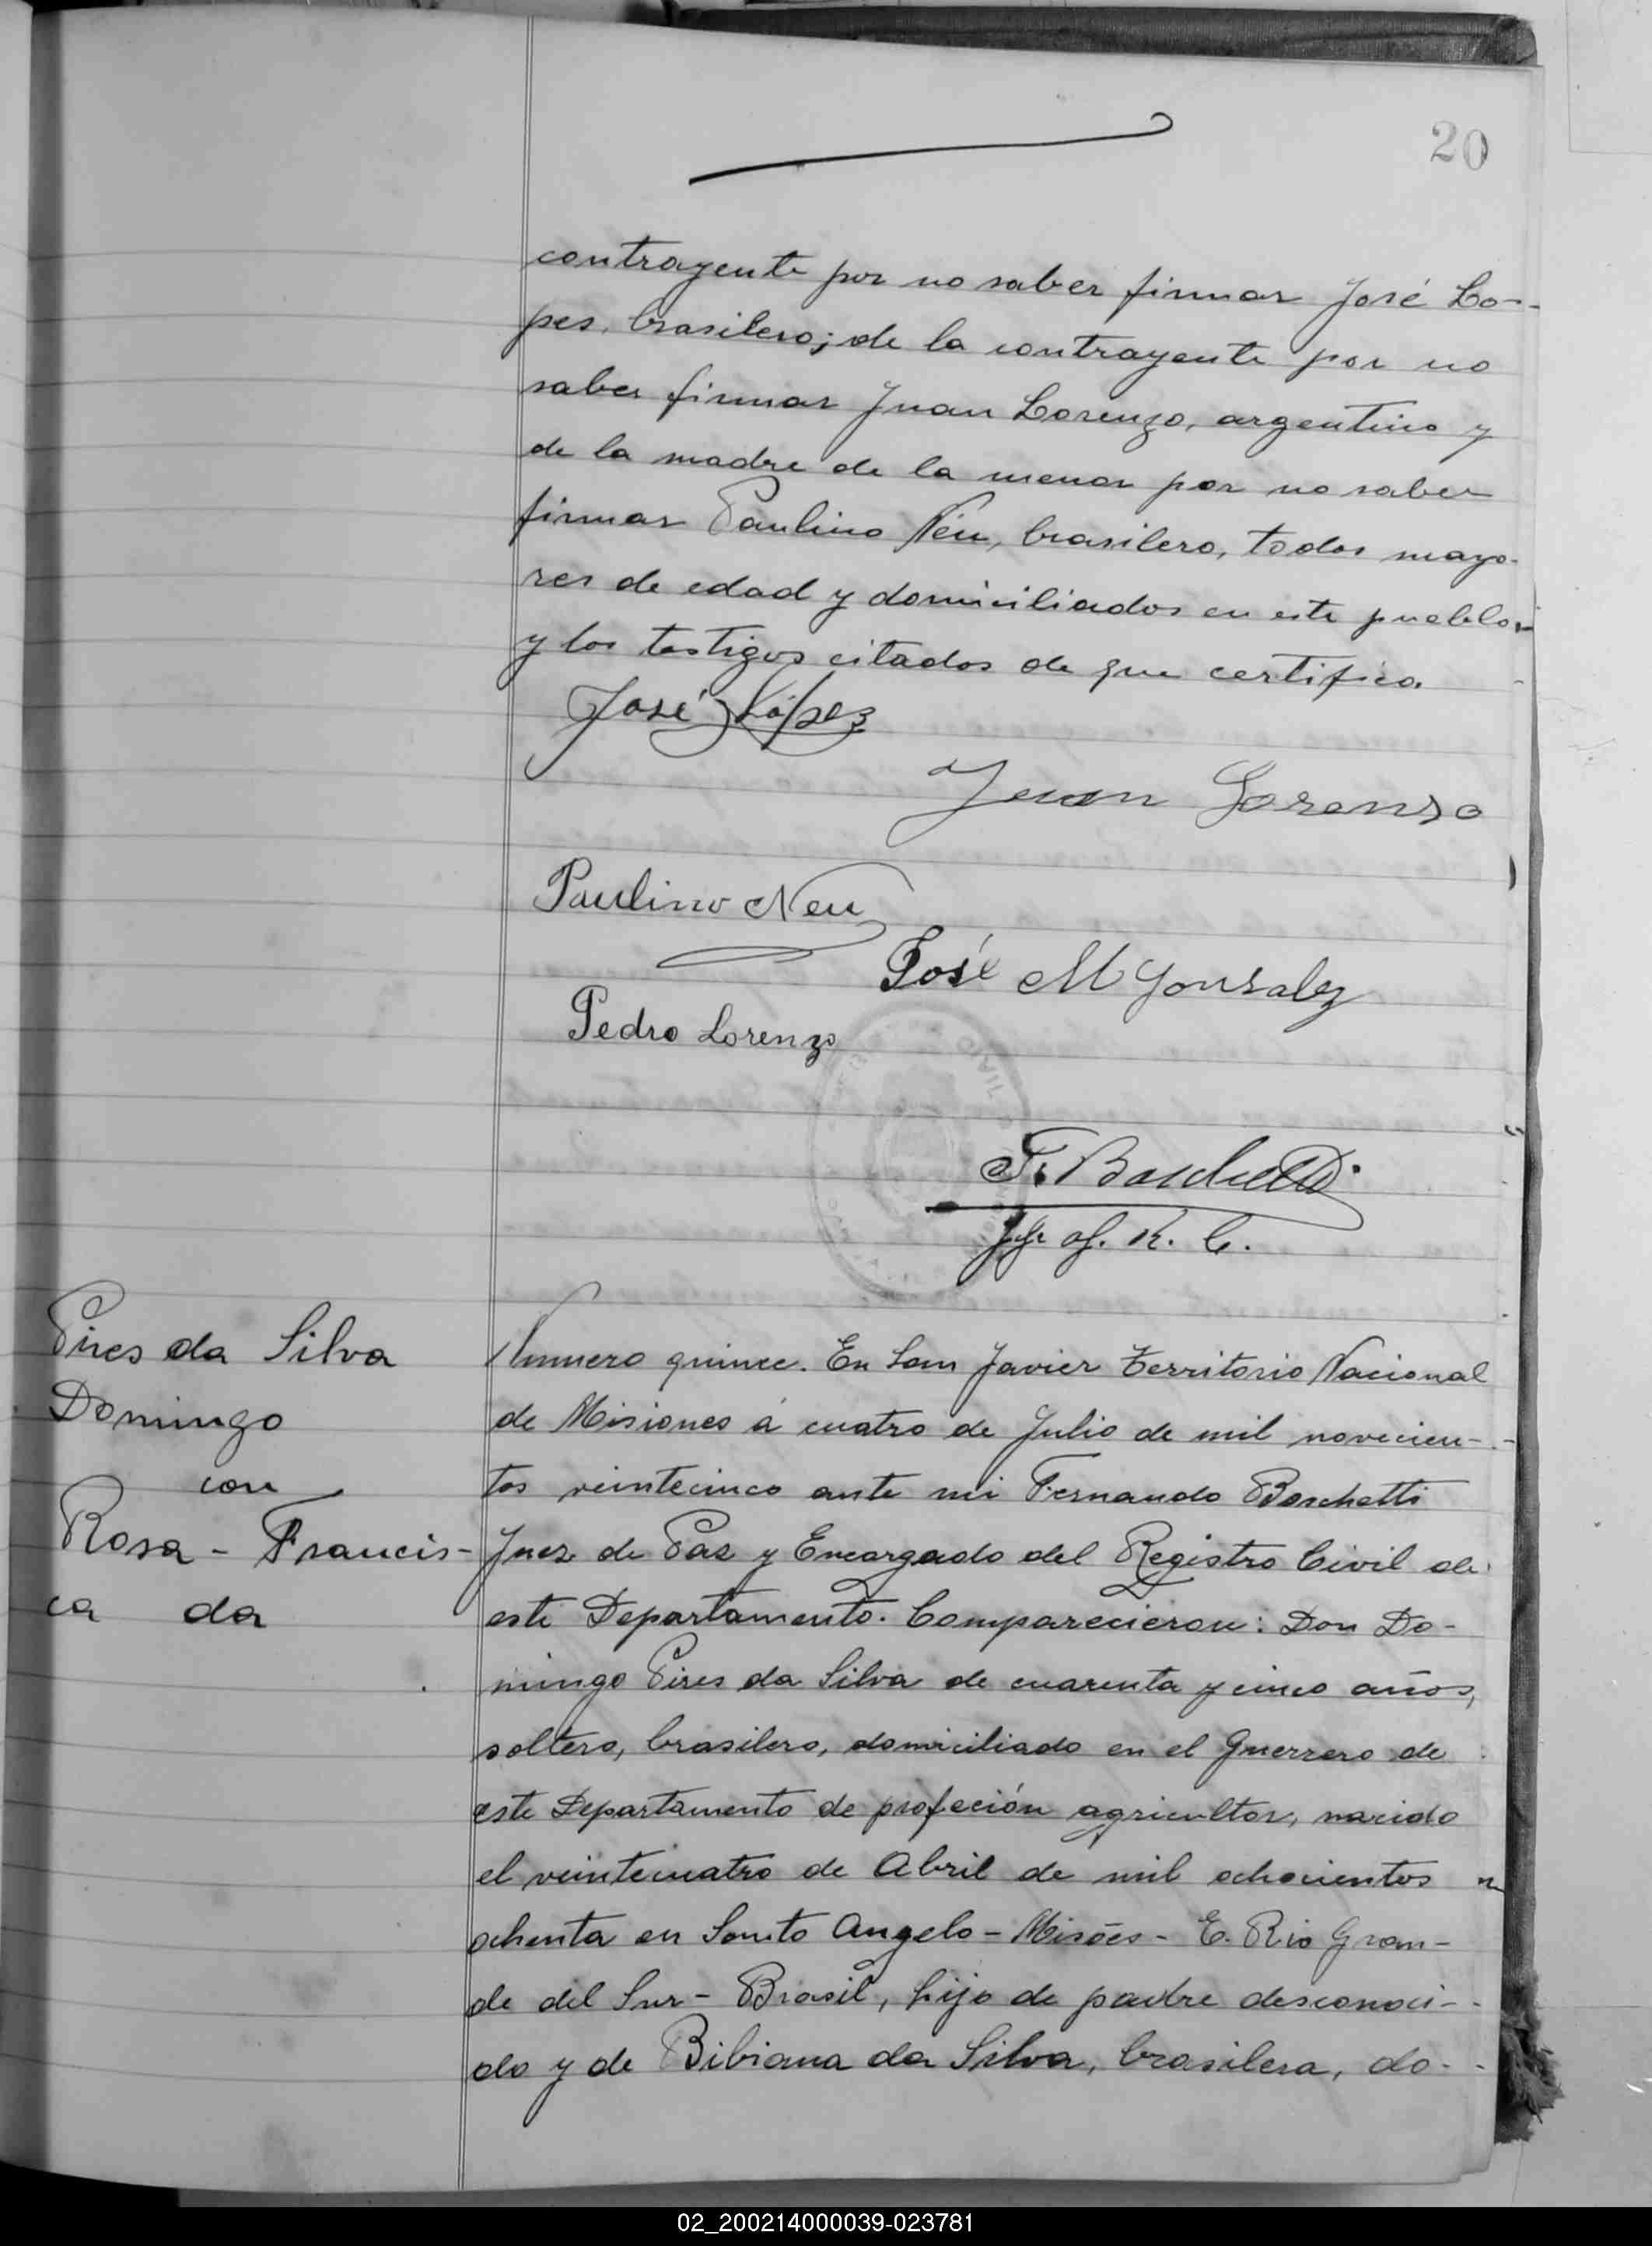 20
contrayente por no saber firmar José Lo-
pes, brasilero; de la contrayente por no
saber firmar Juan Lorenzo, argentino y
de la madre de la menor por no saber
firmar Paulino Néu, brasilero, todos mayo-
res de edad y domiciliados en este pueblo,
y los testigos citados de que certifico.
José López
Juan Lorenzo
Paulino Neu
José M Gonzalez
Pedro Lorenzo
F. Boschetti
R. C.
Pires da Silva
Domingo
con
Rosa - Francis-
ca da
Numero quince. En San Javier Territorio Nacional
de Misiones á cuatro de Julio de mil novecien-
tos veintecinco ante mi Fernando Boschetti
Juez de Paz y Encargado del Registro Civil de
este Departamento. Comparecieron: Don Do-
mingo Pires da Silva de cuarenta y cinco años,
soltero, brasilero, domiciliado en el Guerrero de
este Departamento de profeción agricultor, nacido
el veintecuatro de Abril de mil ochocientos
ochenta en Santo Angelo - Misões - E. Rio Gran-
de del Sur - Brasil, hijo de padre desconoci-
do y de Bibiana da Silva, brasilera, do-
02_200214000039-023781